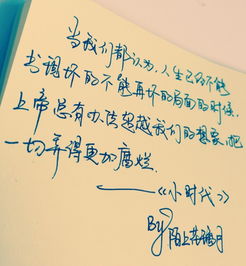 当我们都认为,人生已的不能
当调坏的不能再坏的局面的时候,
上帝总有办法超越我们的想象,把
一切弄得更加腐烂.
——《小时代》
By 陌上花繡月